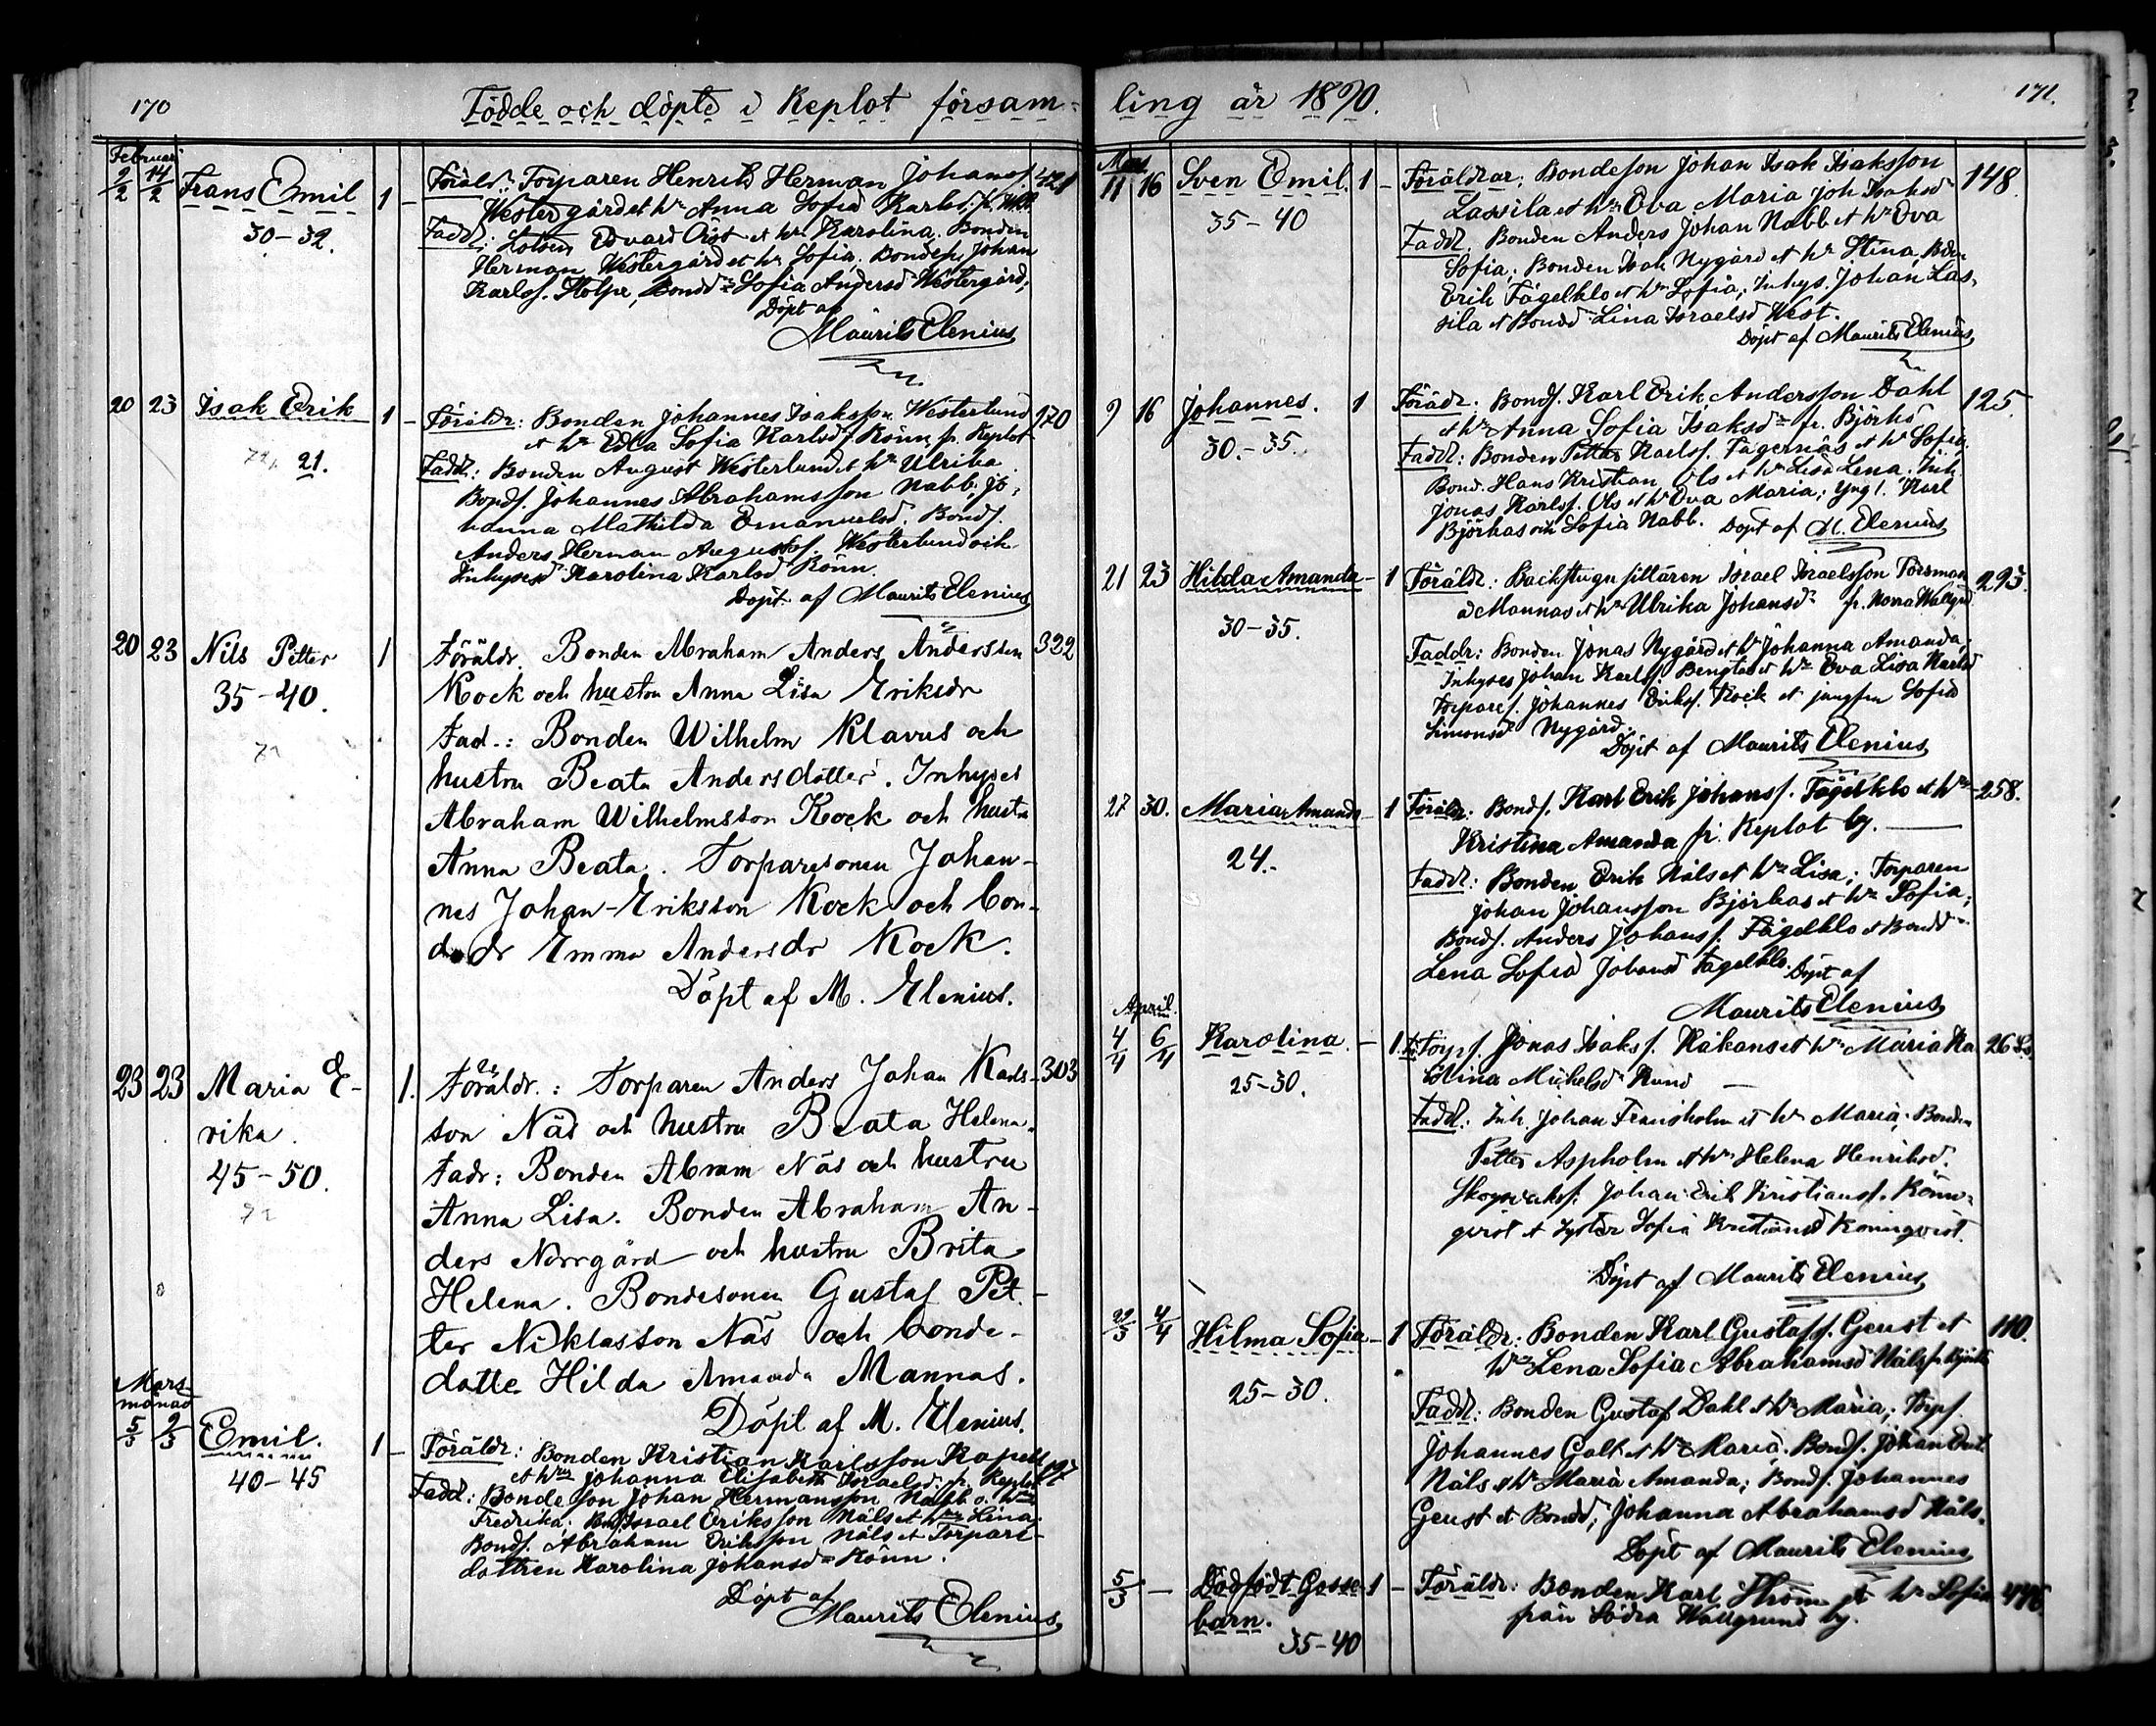 170
Födde och döpte i Replot försam-
Februari
2/2 14/2 Frans Emil 1 - Föräldr: Torparen Henrik Herman Johanss. 421
30-32. Westergård et hu Anna Sofia Karlsd.
Fadd: Lotsen Edvard Öist et hu Karolina. Bonden
Herman Westergård et hu Sofia; Bondes. Johan
Karlss. Stolpe, Bondd Sofia Andersd Westergård;
Döpt af
Maurits Elenius
20 23 Isak Erik 1 - Föräldr: Bonden Johannes Isaksson Westerlund 170
et hu Edla Sofia Karlsd. Rönn fr. Replot
21. Fadd: Bonden August Westerlund et hu Ulrika.
Bonds. Johannes Abrahamsson Nabb; Jo-
hanna Mathilda Emanuelsd. Bonds.
Anders Herman Augustss. Westerlund och
Inhysesd Karolina Karlsd Rönn.
Döpt af Maurits Elenius
20 23 Nils Petter 1 Föräldr. Bonden Abraham Anders Andersson 322
35-40. Kock och hustru Anna Lisa Eriksdr
Fad.: Bonden Wilhelm Klavus och
hustru Beata Andersdotter. Inhyses
Abraham Wilhelmsson Kock och hustru
Anna Beata. Torparesonen Johan-
nes Johan-Eriksson Kock och bon-
dedr Emma Andersdr Kock.
Döpt af M. Elenius.
23 23 Maria E- 1. Föräldr.: Torparen Anders Johan Karls- 303
rika. son Näs och hustru Beata Helena.
45-50. Fadr: Bonden Abram Näs och hustru
Anna Lisa. Bonden Abraham An-
ders Norrgård och hustru Brita
Helena. Bondesonen Gustaf Pet-
ter Niklasson Näs och bonde-
dotte Hilda Amanda Mannas.
Döpt af M. Elenius.
Mars
månad
5/3 9/3 Emil. 1 - Föräldr: Bonden Kristian Karlsson Kapell
40-45 et hu Johanna Elisabeth Israelsd. fr. Replot
Fadd: Bondeson Johan Hermansson Nabb o. hu
Fredrika; Israel Eriksson Näls et hu Lina;
Bonds. Abraham Eriksson Näls et Torpare-
dottren Karolina Johansd Rönn.
Döpt af
Maurits Elenius
ling år 1890.
171.
Mars
11 16 Sven Emil. 1 - Föräldrar: Bondeson Johan Isak Isaksson 148.
35-40 Lassila et hu Eva Maria Joh. Isaksd
Fadd. Bonden Anders Johan Nabb et hu Eva
Sofia; Bonden Isak Nygård et hu Stina, Bonden
Erik Fågelklo et hu Sofia; Inhys. Johan Las-
sila et Bondd Lina Israelsd West.
Döpt af Maurits Elenius
9 16 Johannes. 1 Föräldr. Bonds. Karl Erik Andersson Dahl 125.
et hu Anna Sofia Isaksd fr. Björkö
30.-35. Fadd: Bonden Petter Karlss. Fagernäs et hu Sofia;
Bond. Hans Kristian Ols et hu Lisa Lena. Inh.
Jonas Karlss. Ols et hu Eva Maria; Yngl. Karl
Björkas och Sofia Nabb. Döpt af M. Elenius
21 23 Hilda Amanda - 1 Föräldr: Backstugusittaren Israel Israelsson Forsman 293.
Mannas et hu Ulrika Johansd fr. Norra Wallgrd
30-35. Faddr: Bonden Jonas Nygård et hu Johanna Amanda;
Inhyses Johan Karlss. Bengtas et hu Eva Lisa Karlsd
Torpares. Johannes Erikss. Kock et jungfru Sofia
Simonsd Nygård.
Döpt af Maurits Elenius
27 30. Maria Amanda - 1 Föräldr: Bonds. Karl Erik Johanss. Fågelklo et hu 258.
Kristina Amanda fr. Replot by.
24. Fadd: Bonden Erik Näls et hu Lisa; Torparen
Johan Johansson Björkas et hu Sofia;
Bonds. Anders Johanss. Fågelklo et Bondd
Lena Sofia Johansd Fågelklo. Döpt af
Maurits Elenius
April.
4/4 6/4 Karolina. - 1. Torps. Jonas Isakss. Håkans et hu Maria Ka
25-30. Stina Mickelsd Rund
Fadd: Inh. Johan Fernsholm et hu Maria; Bonden
Petter Aspholm et hu Helena Henriksd.
Skogsvakts. Johan Erik Kristianss. Könn-
qvist et Syster Sofia Kristiansd Könnqvist.
Döpt af Maurits Elenius
29/3 4/4 Hilma Sofia - 1 Föräldr: Bonden Karl Gustafss. Geust et 110.
hu Lena Sofia Abrahamsd Näls fr Björkö
25-30. Fadd: Bonden Gustaf Dahl et hu Maria; Torps.
Johannes Galk et hu Maria. Bonds. Johan Erik
Näls et hu Maria Amanda; Bonds. Johannes
Geust et Bondd; Johanna Abrahamsd Näls.
Döpt af Maurits Elenius
5/3 - Dödfödt Gosse- 1 - Föräldr: Bonden Karl Ström et hu Sofia
barn. från Södra Wallgrund by.
35-40